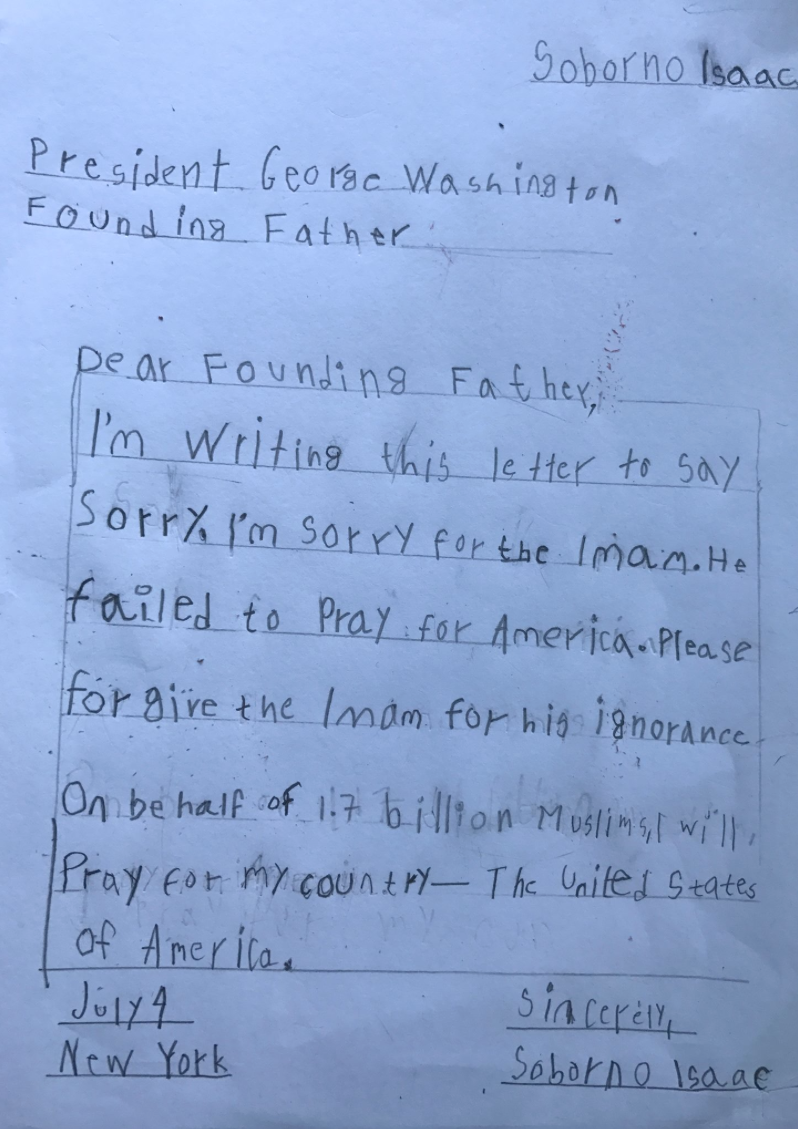 Soborno Isaac
President George Washington
Founding Father
Dear Founding Father,
I'm writing this letter to say
Sorry. I'm sorry for the Imam. He
failed to Pray for America. Please
forgive the Imam for his ignorance
On behalf of 1.7 billion Muslims, I will
Pray for my country— The United States
of America.
July 4
Sincerely,
New York
Soborno Isaac